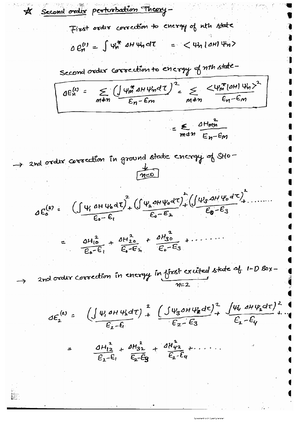 ☆ Second order perturbation Theory-
First order correction to energy of nth state
ΔEn⁽¹⁾ = ∫ψn* ΔH ψn dτ = <ψn|ΔH|ψn>
Second order correction to energy of nth state-
ΔEn⁽²⁾ = Σ m≠n (∫ψm* ΔH ψn dτ)² / En-Em = Σ m≠n <ψm*|ΔH|ψn>² / En-Em
= Σ m≠n ΔHmn² / En-Em
→ 2nd order correction in ground state energy of SHO-
n=0
ΔE0⁽²⁾ = (∫ψ1 ΔH ψ0 dτ)² / E0-E1 + (∫ψ2 ΔH ψ0 dτ)² / E0-E2 + (∫ψ3 ΔH ψ0 dτ)² / E0-E3 + ......
= ΔH10² / E0-E1 + ΔH20² / E0-E2 + ΔH30² / E0-E3 + ........
→ 2nd order correction in energy in first excited state of 1-D Box-
n=2
ΔE2⁽²⁾ = (∫ψ1 ΔH ψ2 dτ)² / E2-E1 + (∫ψ3 ΔH ψ2 dτ)² / E2-E3 + (∫ψ4 ΔH ψ2 dτ)² / E2-E4 + ......
= ΔH12² / E2-E1 + ΔH32² / E2-E3 + ΔH42² / E2-E4 + .......